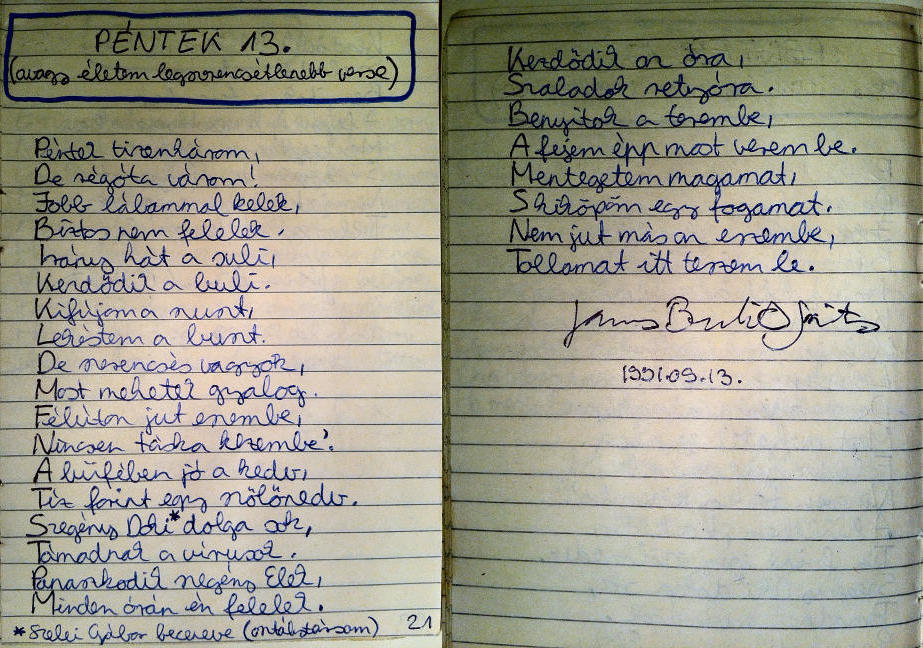 PÉNTEK 13.
(avagy életem legszerencsétlenebb verse)
Péntek tizenhárom,
De régóta várom!
Jobb lábammal kelek,
Biztos nem felelek.
Irány hát a suli,
Kezdődik a buli.
Kifújom a szuszt,
Lekéstem a buszt.
De szerencsés vagyok,
Most mehetek gyalog.
Félúton jut eszembe,
Nincsen táska kezembe'.
A büfében jó a kedv,
Tíz forint egy szőlőnedv.
Szegény Doki* dolga sok,
Támadnak a vírusok.
Panaszkodik szegény Elek,
Minden órán én felelek.
*Szelei Gábor beceneve (osztálytársam)
21
Kezdődik az óra,
Szaladok
Benyitok a terembe,
A fejem épp most verem be.
Mentegetem magamat,
Kiköpöm egy fogamat.
Nem jut más az eszembe,
Tollamat itt teszem le.
1991.09.13.